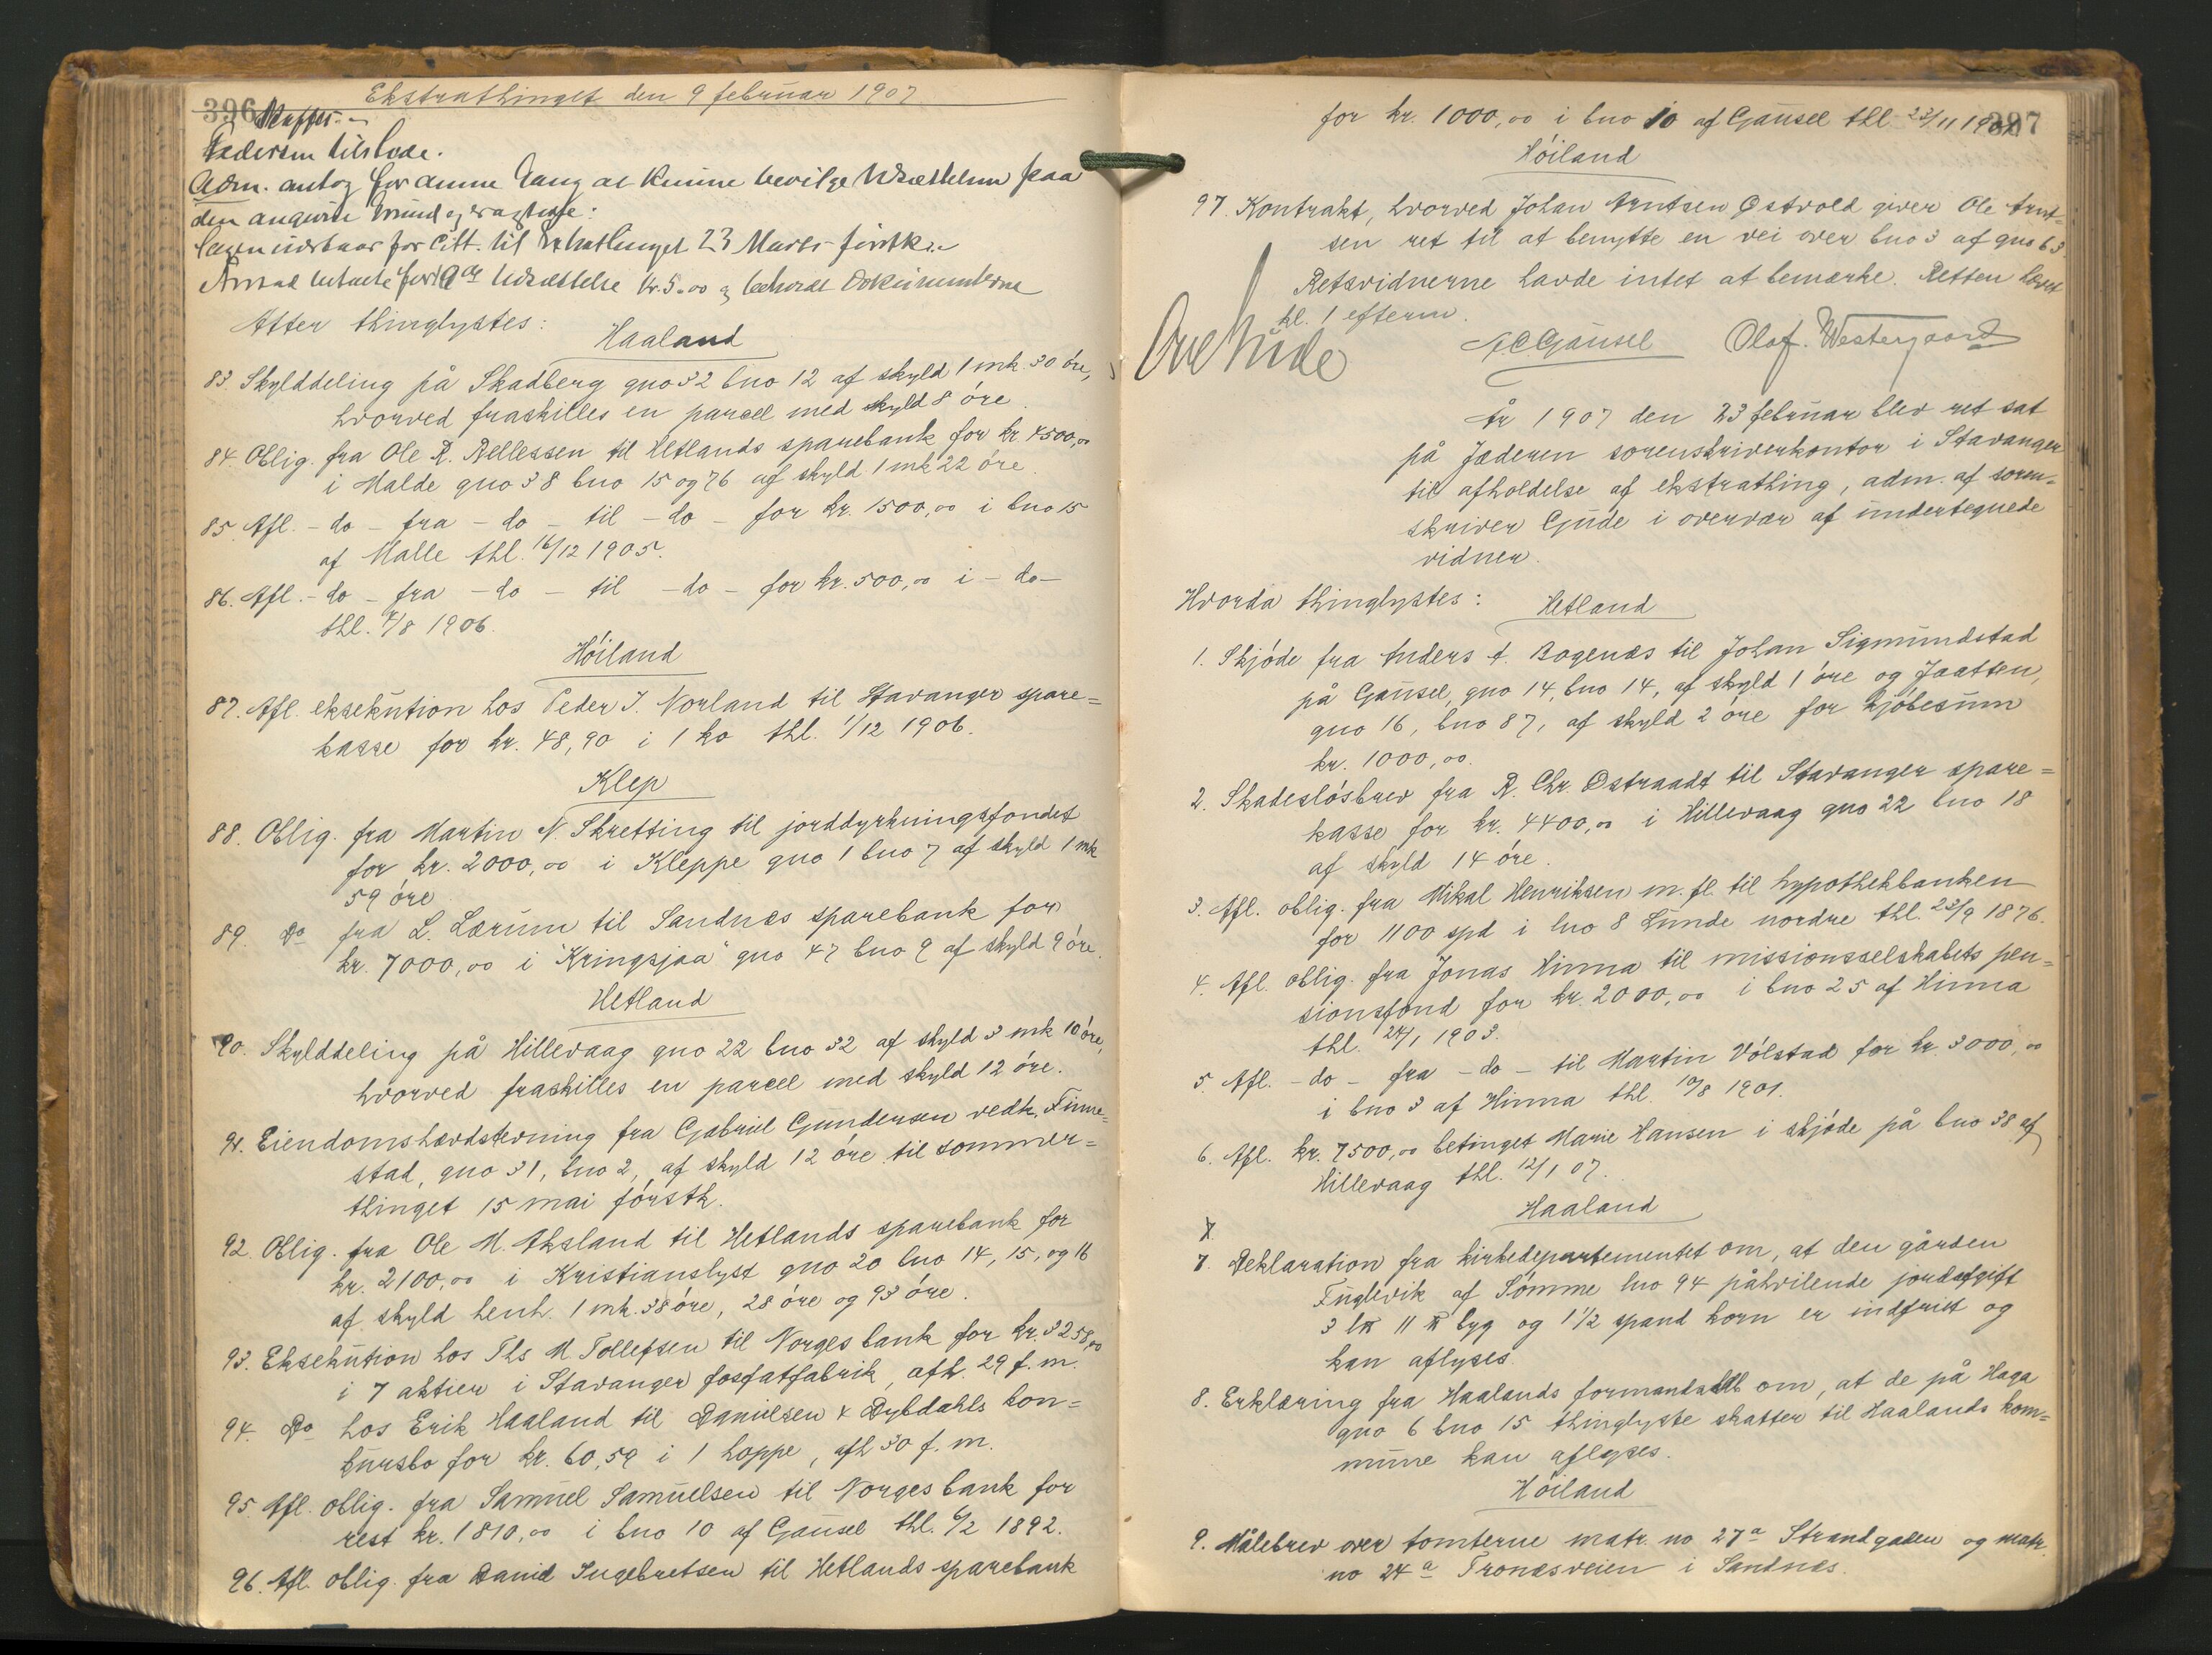 396
Ekstrathinget den 9 februar 1907
Pedersen tilstede.
Adm. antog for denne Gang at kunne bevilge Udsættelsen paa
den angivne Grund og
for Citt. til Ekstrathinget 23 Marts førstk.
Udsættelse kr. 5.00 og Dokumenterne
Atter thinglystes:
Haaland
83. Skylddeling på Skadberg gno 32 bno 12 af skyld 1 mk 30 öre,
hvorved fraskilles en parcel med skyld 8 öre.
84. Oblig. fra Ole R. Rellessen til Hetlands sparebank for kr 4500,00
i Malde gno 38 bno 15 og 76 af skyld 1 mk 22 öre.
85. Afl. - do - fra - do - til - do - for kr. 1500,00 i bno 15
af Malle thl. 16/12 1905.
86. Afl. - do - fra - do - til - do - for kr. 500,00 i - do -
thl. 4/8 1906.
Höiland
87. Afl. eksekution hos Peder J. Norland til Stavanger spare=
kasse for kr. 48,90 i 1 ko thl. 1/12 1906.
Klep
88. Oblig. fra Martin N. Skretting til jorddyrkningsfondet
for kr. 2000,00 i Kleppe gno 1 bno 7 af skyld 1 mk
59 öre
89. Do fra L. Lærum til Sandnæs sparebank for
kr. 7000,00 i "Kringsjaa" gno 47 bno 9 af skyld 9 öre.
Hetland
90. Skylddeling på Hillevaag gno 22 bno 32 af skyld 3 mk 10 öre,
hvorved fraskilles en parcel med skyld 12 öre.
91. Eiendomshævdstevning fra Gabriel Gundersen vedk. Finne=
stad, gno 31, bno 2, af skyld 12 öre til sommer=
thinget 15 mai förstk.
92. Oblig. fra Ole M. Aksland til Hetlands sparebank for
kr. 2100,00 i Kristianslyst gno 20 bno 14, 15, og 16
af skyld henh. 1 mk. 38 öre, 28 öre og 93 öre.
93. Eksekution hos Ths M Tollefsen til Norges bank for kr. 3258,00
i 7 aktier i Stavanger fosfatfabrik, afh. 29 f. m.
94. Do hos Erik Haaland til Danielsen & Dybdahls kon=
kursbo for kr. 60,59 i 1 hoppe, afh 30 f. m.
95. Afl. oblig. fra Samuel Samuelsen til Norges bank for
rest kr. 1810,00 i bno 10 af Gausel thl. 6/2 1892.
96. Afl. oblig. fra David Ingebretsen til Hetlands sparebank
397
for kr. 1000,00 i bno 10 af Gausel thl 23/11
Höiland
97. Kontrakt, hvorved Johan Arntsen Østvold giver Ole Arnt=
sen ret til at benytte en vei over bno 3 af gno 63.
Retsvidnerne havde intet at bemærke. Retten hævet
kl. 1 efterm.
Ove Gude
Gausel Olaf. Westergaard
År 1907 den 23 februar blev ret sat
på Jæderen sorenskriverkontor i Stavanger
til afholdelse af ekstrathing, adm. af soren=
skriver Gude i overvær af undertegnede
vidner.
Hvorda thinglystes: Hetland
1. Skjöde fra Anders A. Bogenæs til Johan Sigmundstad
på Gausel, gno 14, bno 14, af skyld 1 öre og Jaatten,
gno 16, bno 87, af skyld 2 öre for kjöbesum
kr. 1000,00.
2. Skadeslösbrev fra R. Chr. Østraadt til Stavanger spare=
kasse for kr. 4400,00 i Hillevaag gno 22 bno 18
af skyld 14 öre.
3. Afl. oblig. fra Mikal Henriksen m. fl. til hypothekbanken
for 1100 spd i bno 8 Lunde nordre thl. 23/9 1876.
4. Afl. oblig. fra Jonas Hinna til missionsselskabets pen=
sionsfond for kr. 2000,00 i bno 25 af Hinna
thl. 24/1 1903.
5. Afl. - do - fra - do - til Martin Völstad for kr. 3000,00
i bno 3 af Hinna thl. 10/8 1901.
6. Afl. kr. 7500,00 betinget Marie Hansen i skjöde på bno 38 af
Hillevaag thl. 12/1 07.
Haaland
7. Deklaration fra kirkedepartementet om, at den gården
Fuglevik af Sömme bno 94 påhvilende jordafgift
3 l℔ 11 ℔ byg og 1 1/2 spand korn er indfriet og
kan aflyses.
8. Erklæring fra Haalands formandskab om, at de på Haga
gno 6 bno 15 thinglyste skatter til Haalands kom=
mune kan aflyses.
Höiland
9. Målebrev over tomterne matr. no 27a Strandgaden og matr.
no 24a Tronæsveien i Sandnæs.